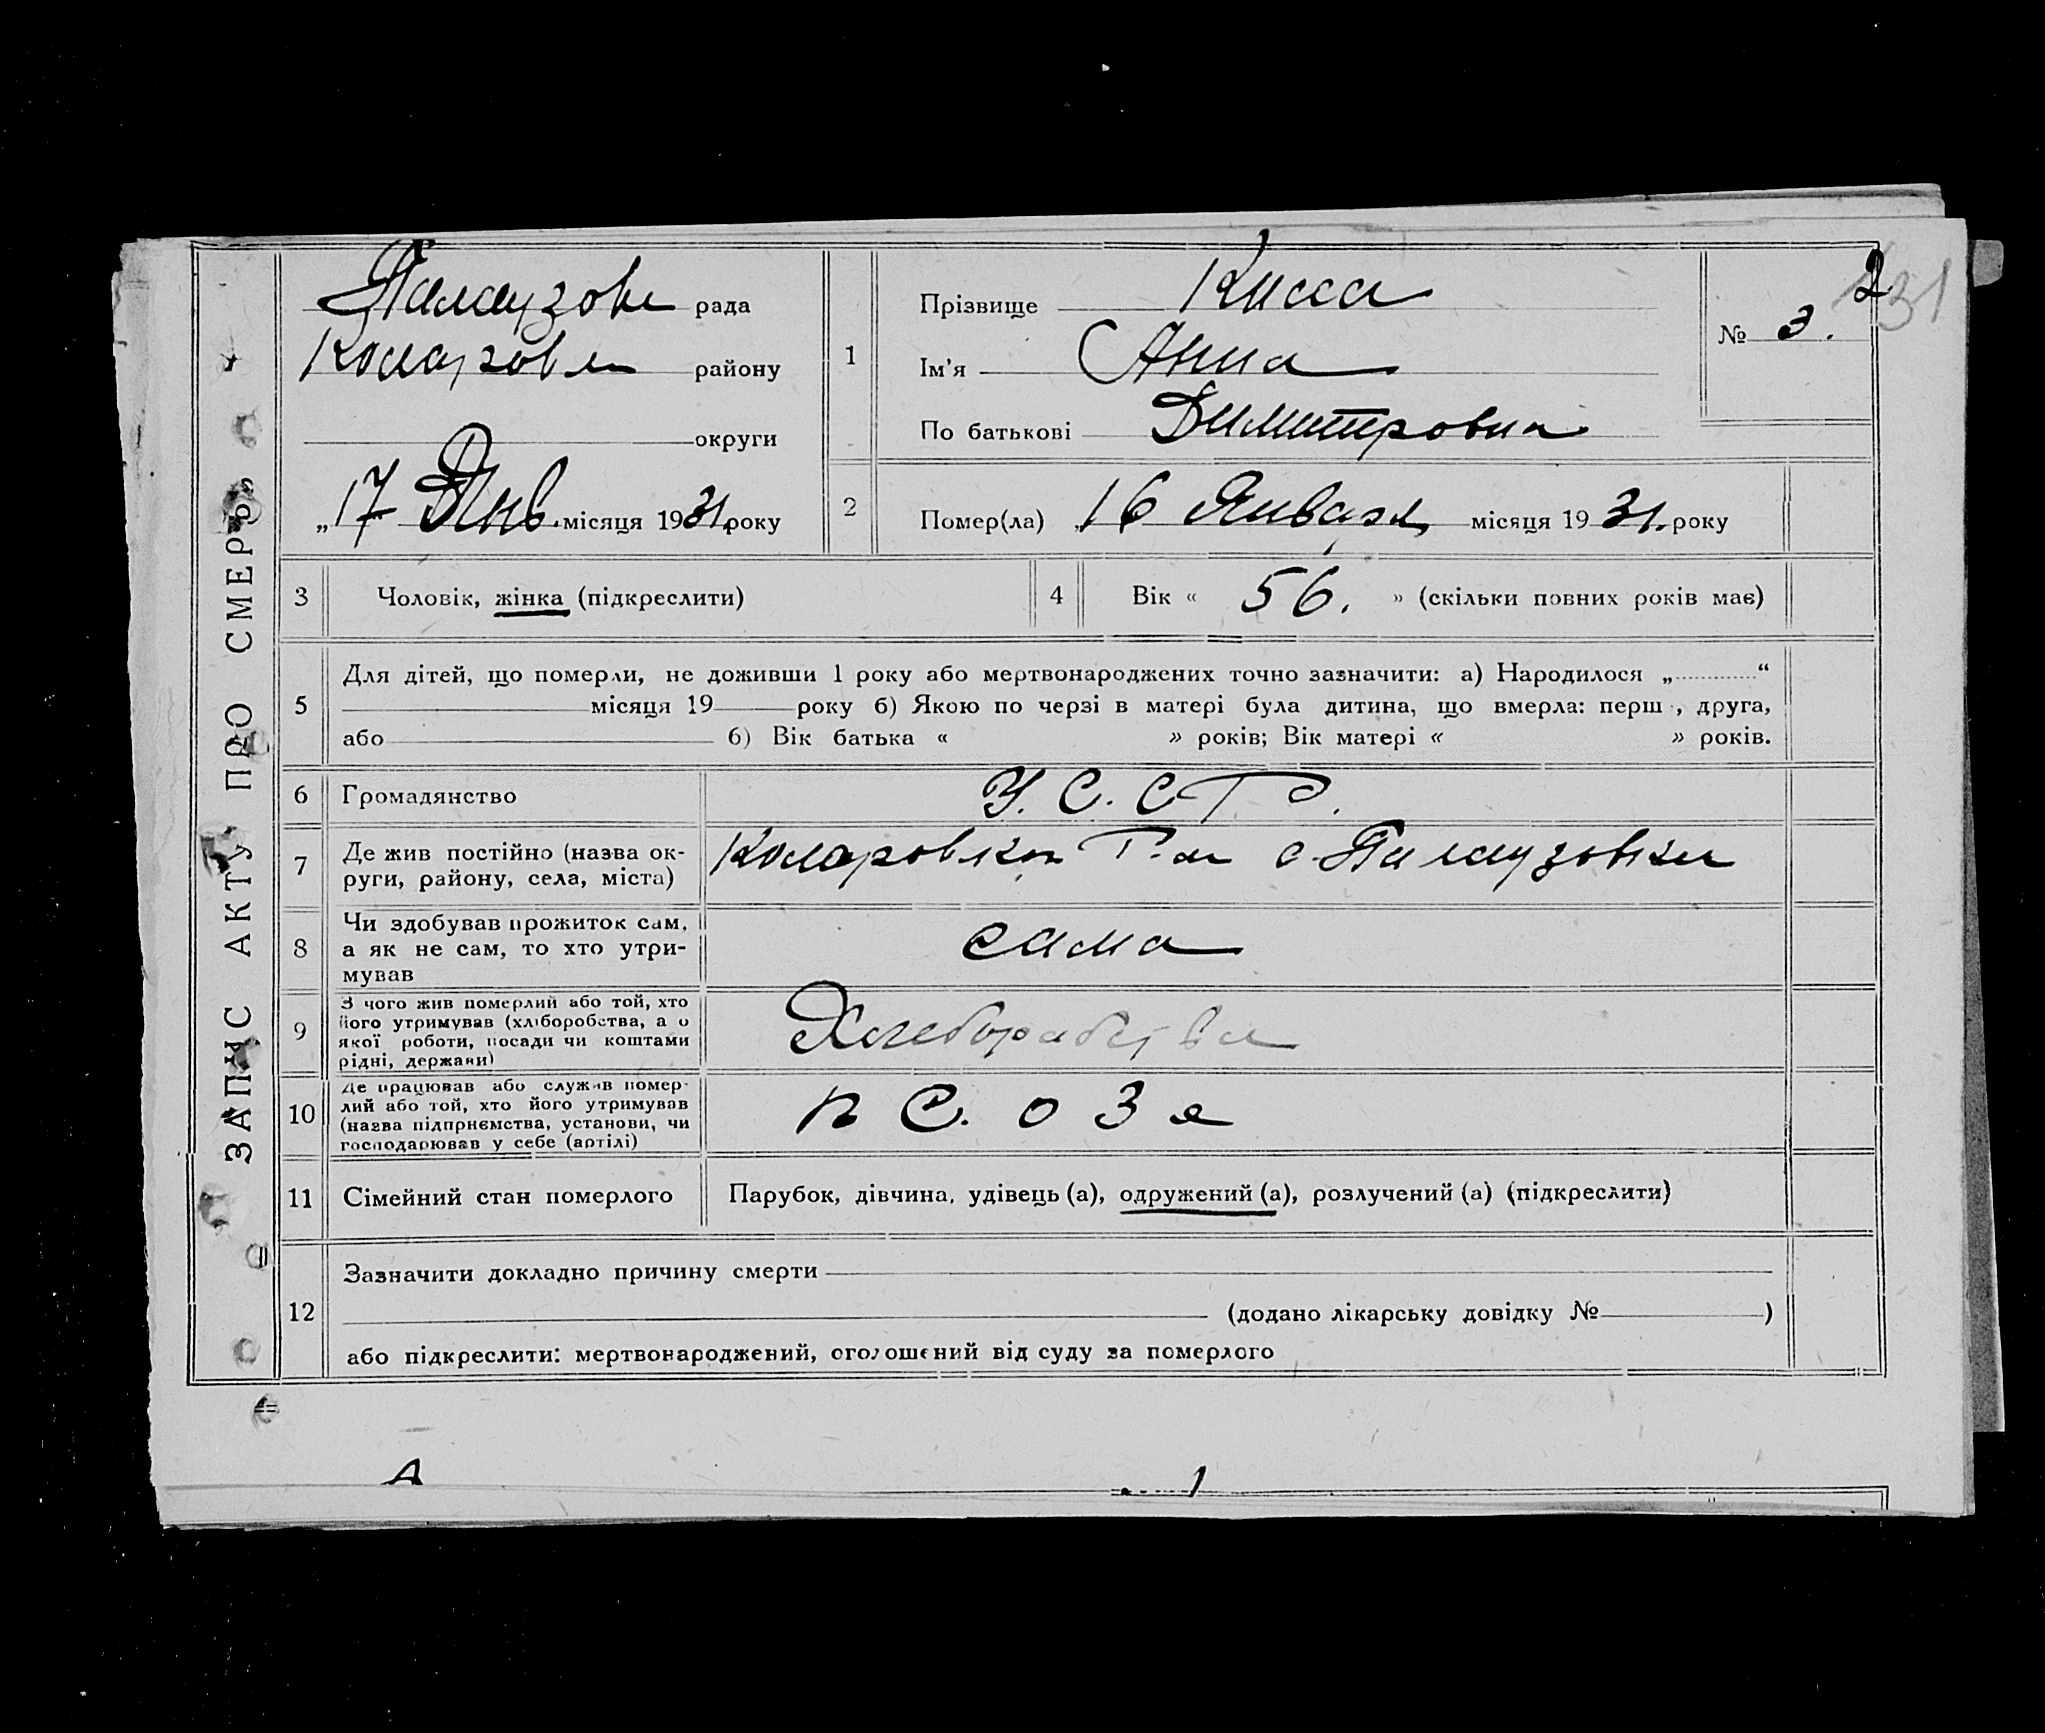 ЗАПИС АКТУ ПРО СМЕРТЬ
Палаузовк рада
Коларовк району
округи
„17 Янв. місяця 1931 року
1
Прізвище Кисса
Ім'я Анна
По батькові Димитровна
№ 3.
2
131
2 Помер(ла) „16 Января місяця 1931. року
3 Чоловік, жінка (підкреслити)
4 Вік « 56. » (скільки повних років має)
5 Для дітей, що померли, не доживши 1 року або мертвонароджених точно зазначити: а) Народилося „ “
місяця 19 року б) Якою по черзі в матері була дитина, що вмерла: перш , друга,
або б) Вік батька « » років; Вік матері « » років.
6 Громадянство У. С. С Р.
7 Де жив постійно (назва ок-
руги, району, села, міста) Коларовкा Р-н с. Палаузовка
8 Чи здобував прожиток сам,
а як не сам, то хто утри-
мував
сама
9 З чого жив померлий або той, хто
його утримував (хліборобства, а о
якої роботи, посади чи коштами
рідні, держави)
Хлеборобства
10 Де працював або служив помер-
лий або той, хто його утримував
(назва підприємства, установи, чи
господарював у себе (артілі)
С. О З а
11 Сімейний стан померлого Парубок, дівчина, удівець (а), одружений (а), розлучений (а) (підкреслити)
12 Зазначити докладно причину смерти
(додано лікарську довідку № )
або підкреслити: мертвонароджений, оголошений від суду за померлого